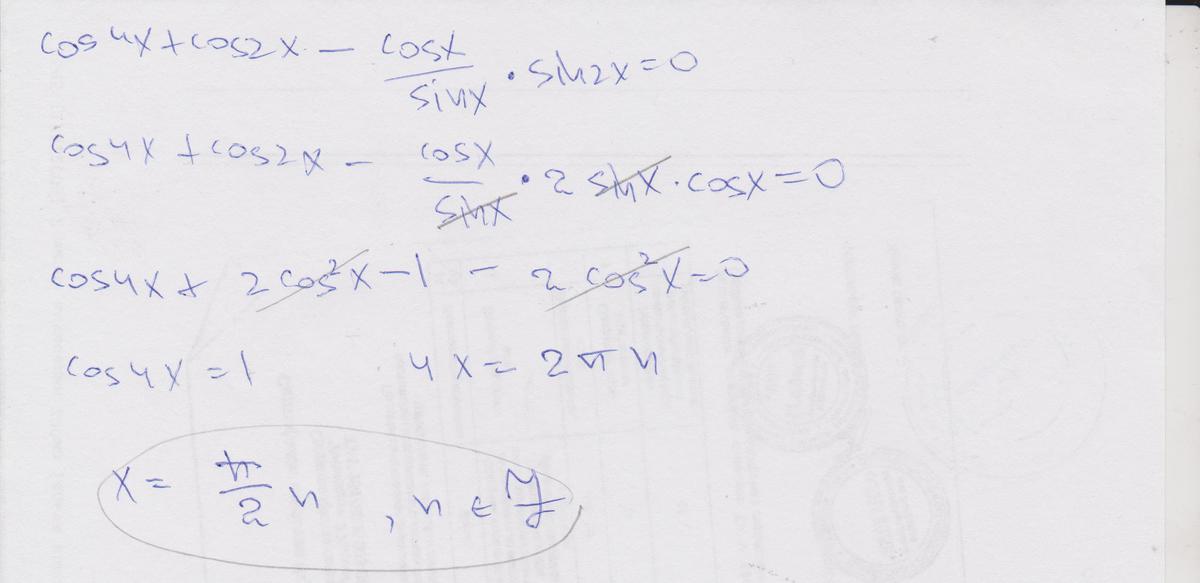 cos4x+cos2x - cosx/sinx · sin2x=0
cos4x+cos2x - cosx/sinx · 2 sinx · cosx=0
cos4x+ 2cos²x-1 - 2cos²x=0
cos4x=1 4x=2πn
x= π/2 n , n ∈ Z